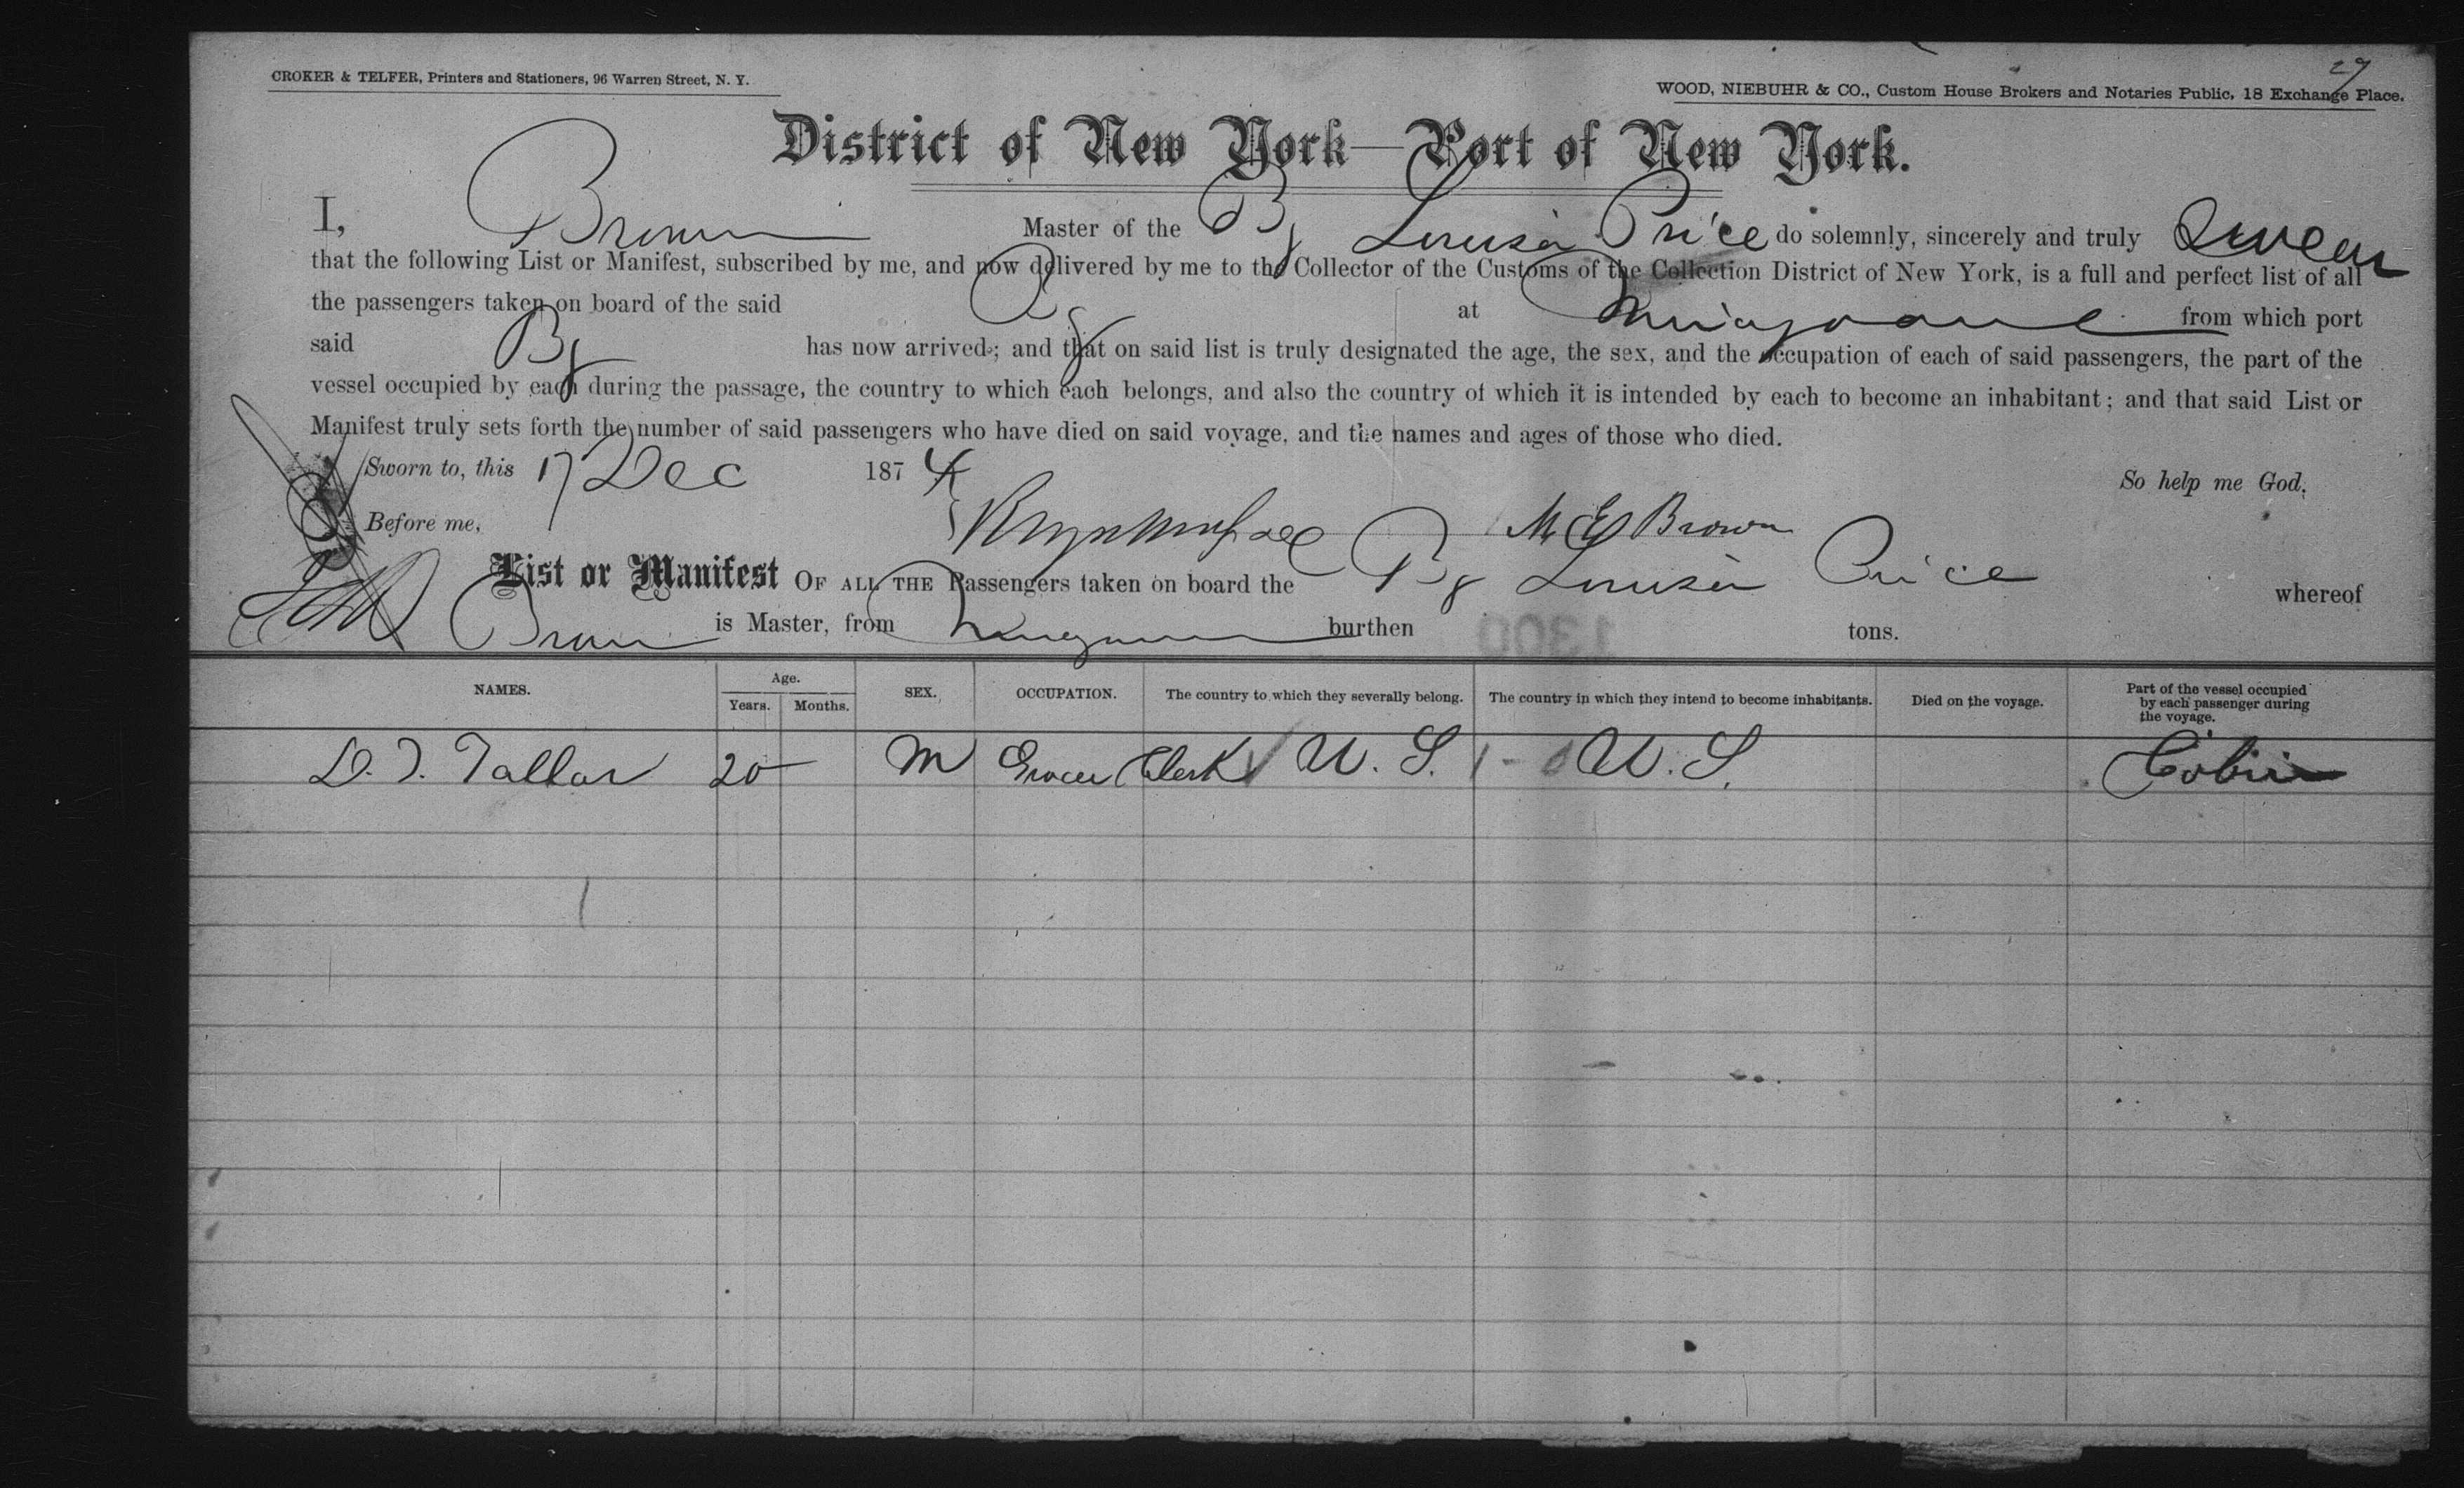 CROKER & TELFER, Printers and Stationers, 96 Warren Street, N. Y.
27
WOOD, NIEBUHR & CO., Custom House Brokers and Notaries Public, 18 Exchange Place.
District of New York—Port of New York.
I, Brown Master of the Bg Louisa Price do solemnly, sincerely and truly Swear
that the following List or Manifest, subscribed by me, and now delivered by me to the Collector of the Customs of the Collection District of New York, is a full and perfect list of all
the passengers taken on board of the said Bg at Miragoane from which port
said Bg has now arrived; and that on said list is truly designated the age, the sex, and the occupation of each of said passengers, the part of the
vessel occupied by each during the passage, the country to which each belongs, and also the country of which it is intended by each to become an inhabitant; and that said List or
Manifest truly sets forth the number of said passengers who have died on said voyage, and the names and ages of those who died.
Sworn to, this 17 Dec 1874 So help me God.
Before me, M E Brown
List or Manifest OF ALL THE Passengers taken on board the Bg Louisa Price whereof
Brown is Master, from Miragoane burthen tons.
1300
NAMES. Age. Years. Months. SEX. OCCUPATION. The country to which they severally belong. The country in which they intend to become inhabitants. Died on the voyage. Part of the vessel occupied by each passenger during the voyage.
D. T. Tallar 20 M Grocer Clerk U. S. U. S. Cabin